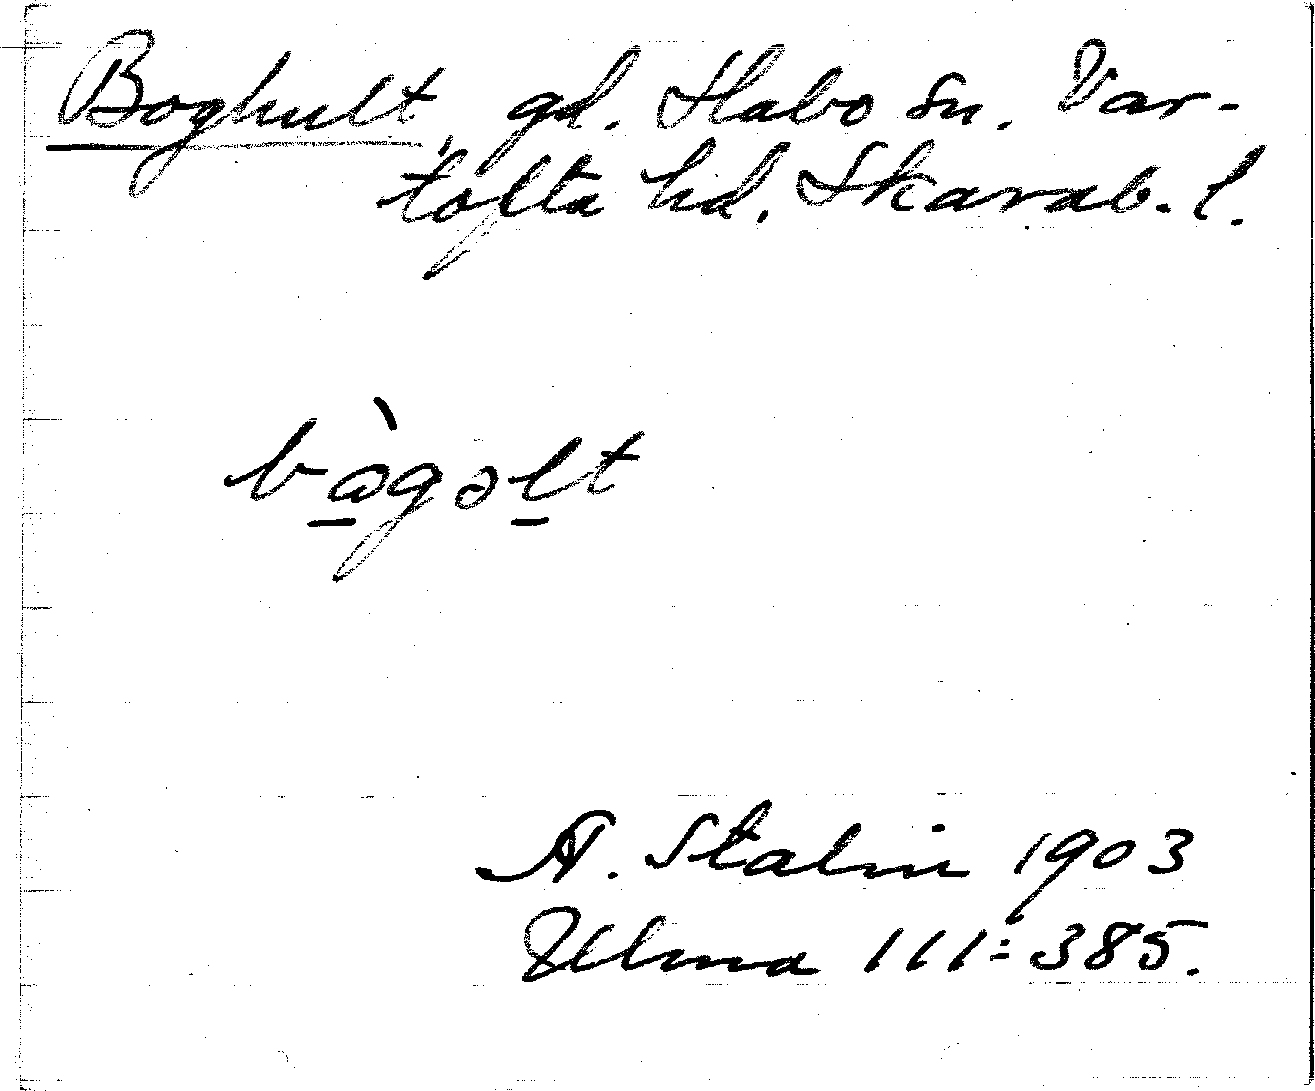 Boghult, gd. Habo sn. Var-
tofta hd. Skarab. l.
bàgəlt
A. Stalin 1903
Ulma 111:385.